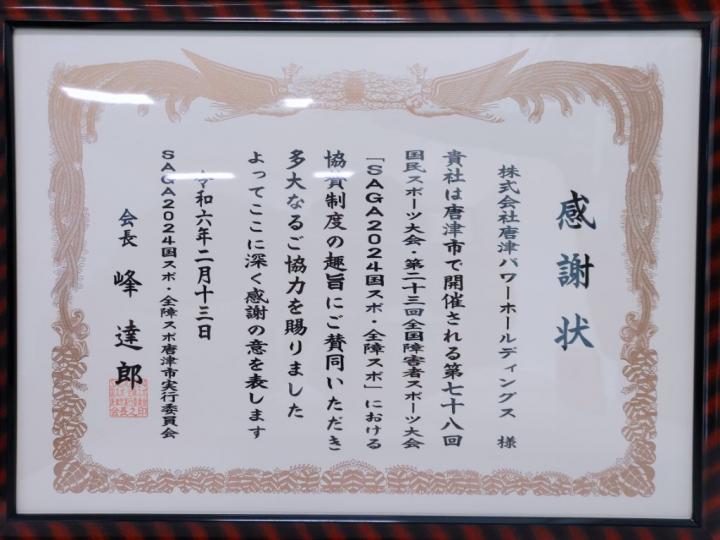 感謝状
株式会社唐津パワーホールディングス 様
貴社は唐津市で開催される第七十八回
国民スポーツ大会・第二十三回全国障害者スポーツ大会
「SAGA2024国スポ・全障スポ」における
協賛制度の趣旨にご賛同いただき
多大なるご協力を賜りました
よってここに深く感謝の意を表します
令和六年二月十三日
SAGA2024国スポ・全障スポ唐津市実行委員会
会長 峰 達郎